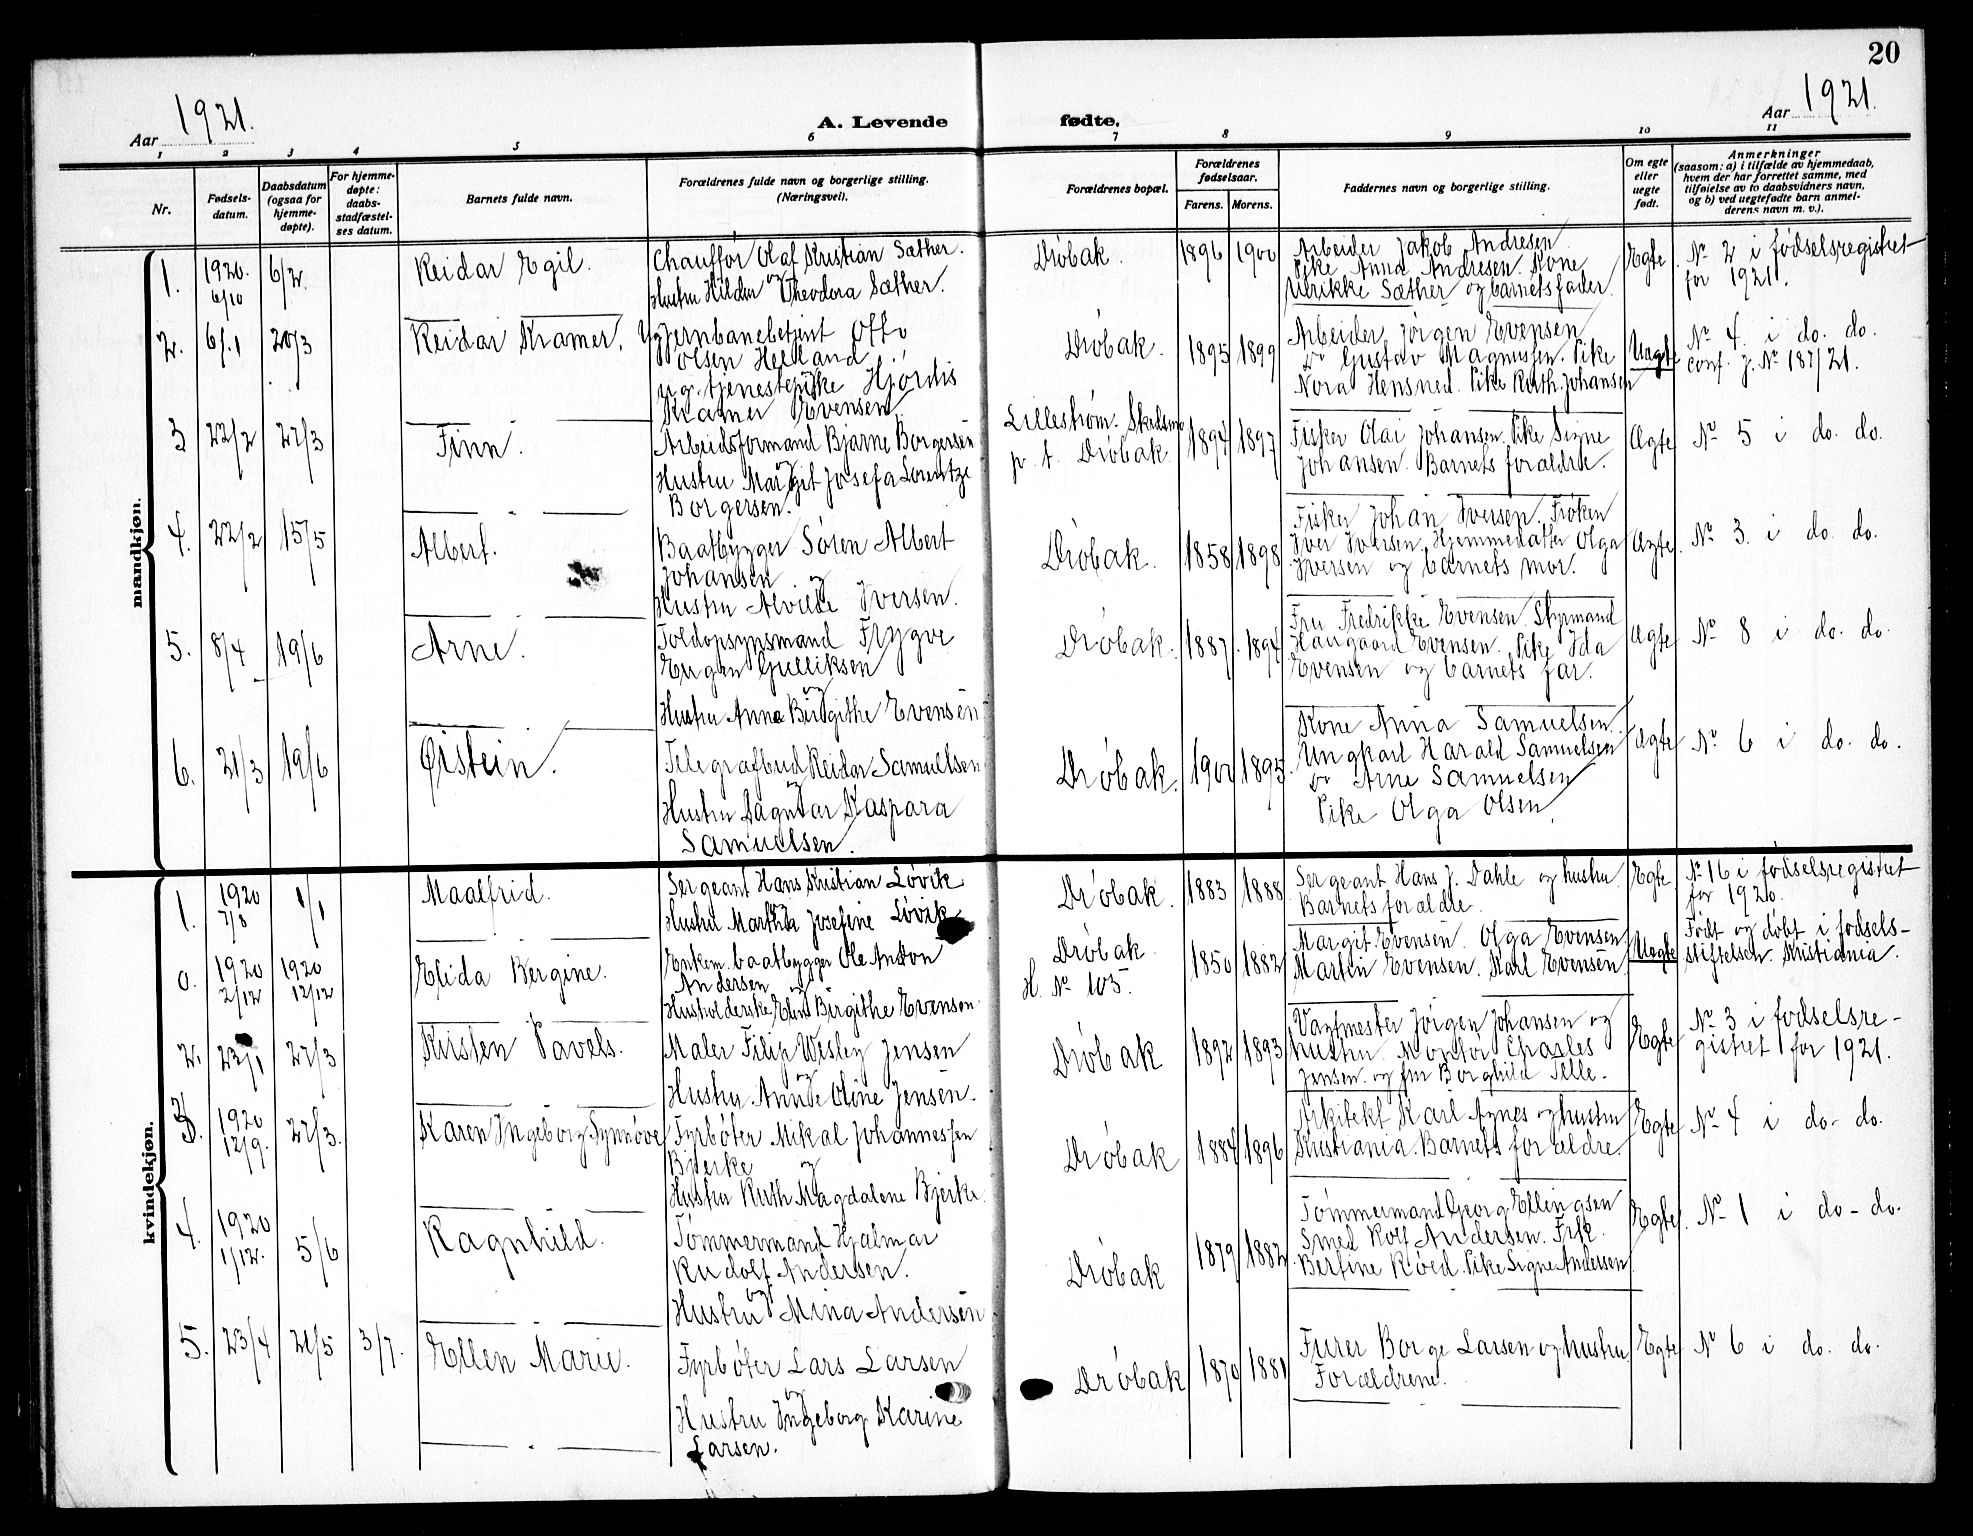 20
Aar 1921.
A. Levende fødte.
Aar 1921.
1 2 3 4 5 6 7 8 9 10 11
Nr.
Fødsels-
datum.
Daabsdatum
(ogsaa for
hjemme-
døpte).
For hjemme-
døpte:
daabs-
stadfæstel-
ses datum.
Barnets fulde navn.
Forældrenes fulde navn og borgerlige stilling.
(Næringsvei).
Forældrenes bopæl.
Forældrenes
fødselsaar.
Farens. Morens.
Faddernes navn og borgerlige stilling.
Om egte
eller
uegte
født.
Anmerkninger
(saasom: a) i tilfælde av hjemmedaab,
hvem der har forrettet samme, med
tilføielse av to daabsvidners navn,
og b) ved uegtefødte barn anmel-
derens navn m. v.).
mandkjøn.
1. 1920. 6/10 6/2. Reidar Egil.
Chauffør Olaf Kristian Sæther.
og
Hustru Hilda Theodora Sæther.
Drøbak. 1896 1900
Arbeider Jakob Andresen
Pike Anna Andresen. Kone
Ulrikke Sæther og barnets fader.
Egte. No 2 i fødselsregistret
for 1921.
2. 6/1 20/3 Reidar Kramer.
Ug. Jernbanebetjent Otto
Olsen Helland
ug. tjenestepike Hjørdis
Kramer Evensen
Drøbak. 1895 1899
Arbeider Jørgen Evensen
do Gustav Magnussen. Pike
Nora Hensned. Pike Ruth Johansen
Uegte No 4. i do. do.
conf. j. No 187/21.
3 22/2 27/3 Finn.
Arbeidsformand Bjarne Borgersen
og
Hustru Margit Josefa Lorentze
Borgersen.
Lillestrøm. Skedsmo
p. t. Drøbak. 1894 1897
Fisker Olai Johansen. Pike Signe
Johansen. Barnets forældre.
Ægte No 5 i do. do.
4. 22/2 15/5 Albert.
Baatbygger Søren Albert
Johansen og
Hustru Alvilde Iversen.
Drøbak. 1858 1898
Fisker Johan Iversen. Frøken
Iver Iversen, Hjemmedatter Olga
Iversen og barnets mor.
Ægte. No 3. i do. do.
5. 8/4 19/6 Arne.
Toldopsynsmand Trygve
Eugen Gulliksen
og
Hustru Anna Birgithe Evensen
Drøbak. 1887. 1894
Fru Fredrikke Evensen. Styrmand
Haagaard Evensen. Pike Ida
Evensen og barnets far.
Ægte No 8 i do. do.
6. 21/3 19/6 Øistein.
Telegrafbud Reidar Samuelsen
og
Hustru Dagmar Kaspara
Samuelsen.
Drøbak. 1900 1895
Kone Anna Samuelsen.
Ungkarl Harald Samuelsen
do Arne Samuelsen
Pike Olga Olsen.
Ægte No 6 i do. do.
kvindekjøn.
1. 1920 7/8 1/1 Maalfrid.
Sergeant Hans Kristian Løvik
og
Hustru Martha Josefine Løvik
Drøbak. 1883 1888
Sergeant Hans J. Dahle og hustru.
Barnets forældre.
Egte No 16 i fødselsregistret
for 1920.
0. 1920 2/12 1920 12/12 Elida Bergine.
Enkem. baatbygger Ole Anton
Andersen og
Husholderske Elen Birgithe Evensen
Drøbak.
H. No 105. 1850 1882
Margit Evensen. Olga Evensen
Martin Evensen. Karl Evensen
Uegte Født og døbt i fødsels-
stiftelsen. Kristiania.
2. 23/1 27/3 Kirsten Pavels.
Maler Filip Wesley Jensen
og
Hustru Annie Oline Jensen.
Drøbak 1892 1893
Vagtmester Jørgen Johansen og
hustru. Montør Charles
Jensen og fru Borghild Telle.
Egte No 3 i fødselsre-
gistret for 1921.
3. 1920 12/9. 27/3. Karen Ingeborg Synnøve
Fyrbøter Mikal Johannessen
Bjerke og
Hustru Ruth Magdalene Bjerke.
Drøbak 1884 1896
Arkitekt Karl Agnes og hustru
Kristiania. Barnets forældre.
Egte No 4 i do. do.
4. 1920 1/12. 5/6 Ragnhild.
Tømmermand Hjalmar
Rudolf Andersen.
og
Hustru Mina Andersen
Drøbak 1879 1882.
Tømmermand Georg Ellingsen
Smed Rolf Andersen. Frk.
Bertine Røed. Pike Signe Andersen
Egte. No 1 i do - do.
5. 23/4 21/5 3/7. Ellen Marie.
Fyrbøter Lars Larsen
og
Hustru Ingeborg Karine
Larsen.
Drøbak 1870 1881
Furer Borge Larsen og hustru.
Forældrene.
Egte No 6 i do. do.